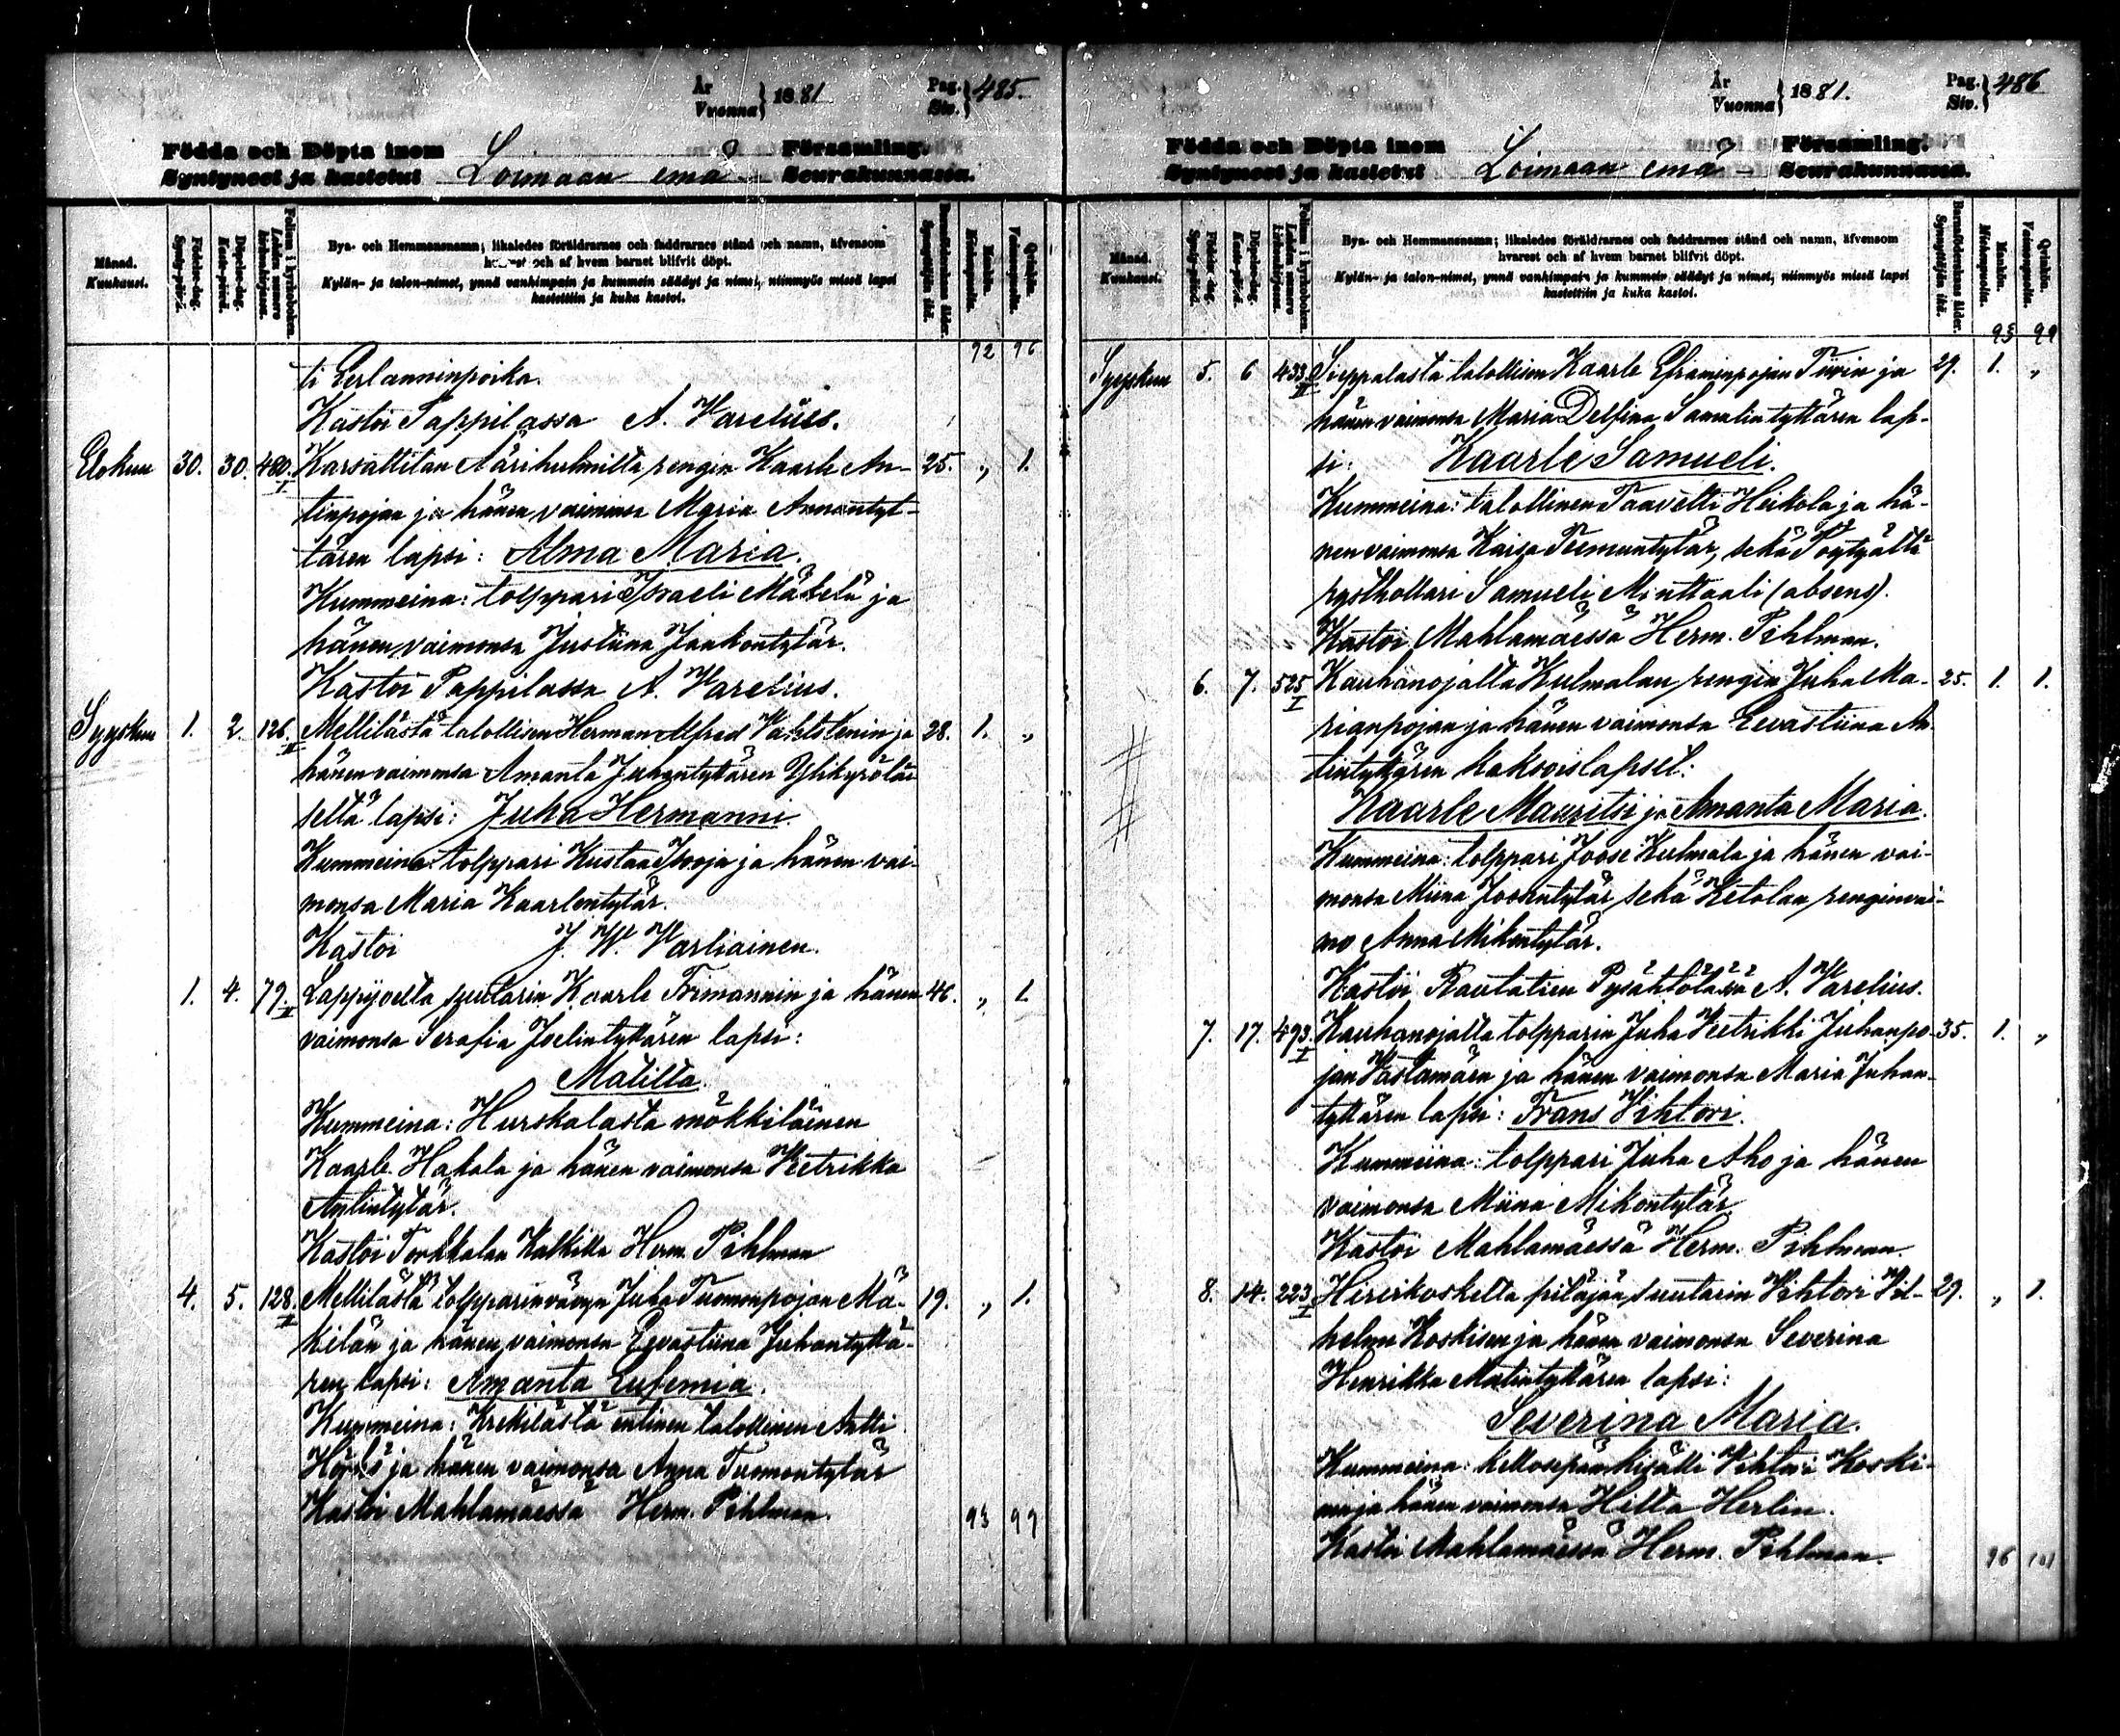 År
Vuonna } 1881
Pag.
Siv. } 485.
Födda och Döpta inom Församling.
Syntyneet ja kastetut Loimaan emä- Seurakunnasta.
Månad.
Kuukausi.
Födelse-dag.
Synty-päivä.
Döpelse-dag.
Kaste-päivä.
Folium i kyrkoboken.
Lehden numero kirkonkirjassa.
Bys- och Hemmansnamn; likaledes föräldrarnes och faddrarnes stånd och namn, äfvensom
hvarest och af hvem barnet blifvit döpt.
Kylän- ja talon-nimet, ynnä vanhimpain ja kummein säädyt ja nimet, niinmyös missä lapsi
kastettiin ja kuka kastoi.
Barnaföderskans ålder.
Synnyttäjän ikä.
Mankön.
Miehenpuolia.
Qvinkön.
Vaimonpuolia.
92 96
ti Perlanninpoika.
Kastoi Pappilassa A. Varelius.
Elokuu 30. 30. 480. I Karsattilan Äärikulmilta rengin Kaarle An- 25. „ 1.
tinpojan ja hänen vaimonsa Maria Annantyt-
tären lapsi: Alma Maria.
Kummeina: tolppari Israeli Mäkelä ja
hänen vaimonsa Justiina Jaakontytär.
Kastoi Pappilassa A. Varelius.
Syyskuu 1. 2. 126. II Mellilästä talollisen Herman Alfred Vahlstenin ja 28. 1. „
hänen vaimonsa Amanta Juhontyttären Ylikyrölai
seltä lapsi: Juha Hermanni.
Kummeina: tolppari Kustaa Isooja ja hänen vai-
monsa Maria Kaarlentytär.
Kastoi J. W. Wartiainen.
1. 4. 79. II Lappijoelta suutarin Kaarle Formannin ja hänen 46. „ 1.
vaimonsa Serafia Joelintyttären lapsi:
Matilta.
Kummeina: Hurskalasta mökkiläinen
Kaarle Hakala ja hänen vaimonsa Vetrikka
Antintytär.
Kastoi Torkkalan Kalkilla Herm. Pihlman
4. 5. 128. II Mellilästä tolpparinvävyn Juha Tuomonpojan Mä- 19. „ 1.
kilän ja hänen vaimonsa Eevastiina Juhantyttä-
ren lapsi: Amanta Eufemia.
Kummeina: Krekilästä entinen talollinen Antti
Hörkö ja hänen vaimonsa Anna Tuomontytär
Kastoi Mahlamäessä Herm. Pihlman.
93 99
År
Vuonna } 1881.
Pag.
Siv. } 486
Födda och Döpta inom Församling.
Syntyneet ja kastetut Loimaan emä- Seurakunnassa.
Månad.
Kuukausi.
Födelse-dag.
Synty-päivä.
Döpelse-dag.
Kaste-päivä.
Folium i kyrkoboken.
Lehden numero kirkonkirjassa.
Bys- och Hemmansnamn; likaledes föräldrarnes och faddrarnes stånd och namn, äfvensom
hvarest och af hvem barnet blifvit döpt.
Kylän- ja talon-nimet, ynnä vanhimpain ja kummein säädyt ja nimet, niinmyös missä lapsi
kastettiin ja kuka kastoi.
Barnaföderskans ålder.
Synnyttäjän ikä.
Mankön.
Miehenpuolia.
Qvinkön.
Vaimonpuolia.
93 99
Syyskuu 5. 6 433. II Sieppalasta talollisen Kaarle Efraiminpojan Tuvin ja 29. 1. „
hänen vaimonsa Maria Delfina Samulintyttären lap-
si: Kaarle Samueli.
Kummeina: talollinen Taavetti Heikola ja hä-
nen vaimonsa Kaisa Teemuntytär, sekä Pöytyältä
rysthollari Samueli Minttaali (absens).
Kastoi Mahlamäessä Herm. Pihlman.
6. 7. 525 I Kauhanojalta Kulmalan rengin Juha Ma- 25. 1. 1.
rianpojan ja hänen vaimonsa Eevastiina An-
tintyttären kaksoislapset:
Kaarle Mauritsi ja Amanta Maria.
Kummeina: tolppari Joose Kulmala ja hänen vai-
monsa Miina Joosentytär sekä Ketolan renginvai-
mo Anna Mikontytär.
Kastoi Rautatien Pysähtölässä A. Varelius.
7. 17. 493. I Kauhanojalta tolpparin Juha Vetrikki Juhanpo- 35. 1. „
jan Västamäen ja hänen vaimonsa Maria Juhan-
tyttären lapsi: Frans Vihtori.
Kummeina: tolppari Juha Aho ja hänen
vaimonsa Miina Mikontytär.
Kastoi Mahlamäessä Herm. Pihlman.
8. 14. 223 I Hirvikoskelta pitäjän suutarin Vihtori Vil- 29. „ 1.
helmi Koskisen ja hänen vaimonsa Severina
Henrikka Matintyttären lapsi:
Severina Maria.
Kummeina: kellosepän kisälli Vihtori Koski-
nen ja hänen vaimonsa Hilta Herlin.
Kastoi Mahlamäessä Herm. Pihlman.
96 101